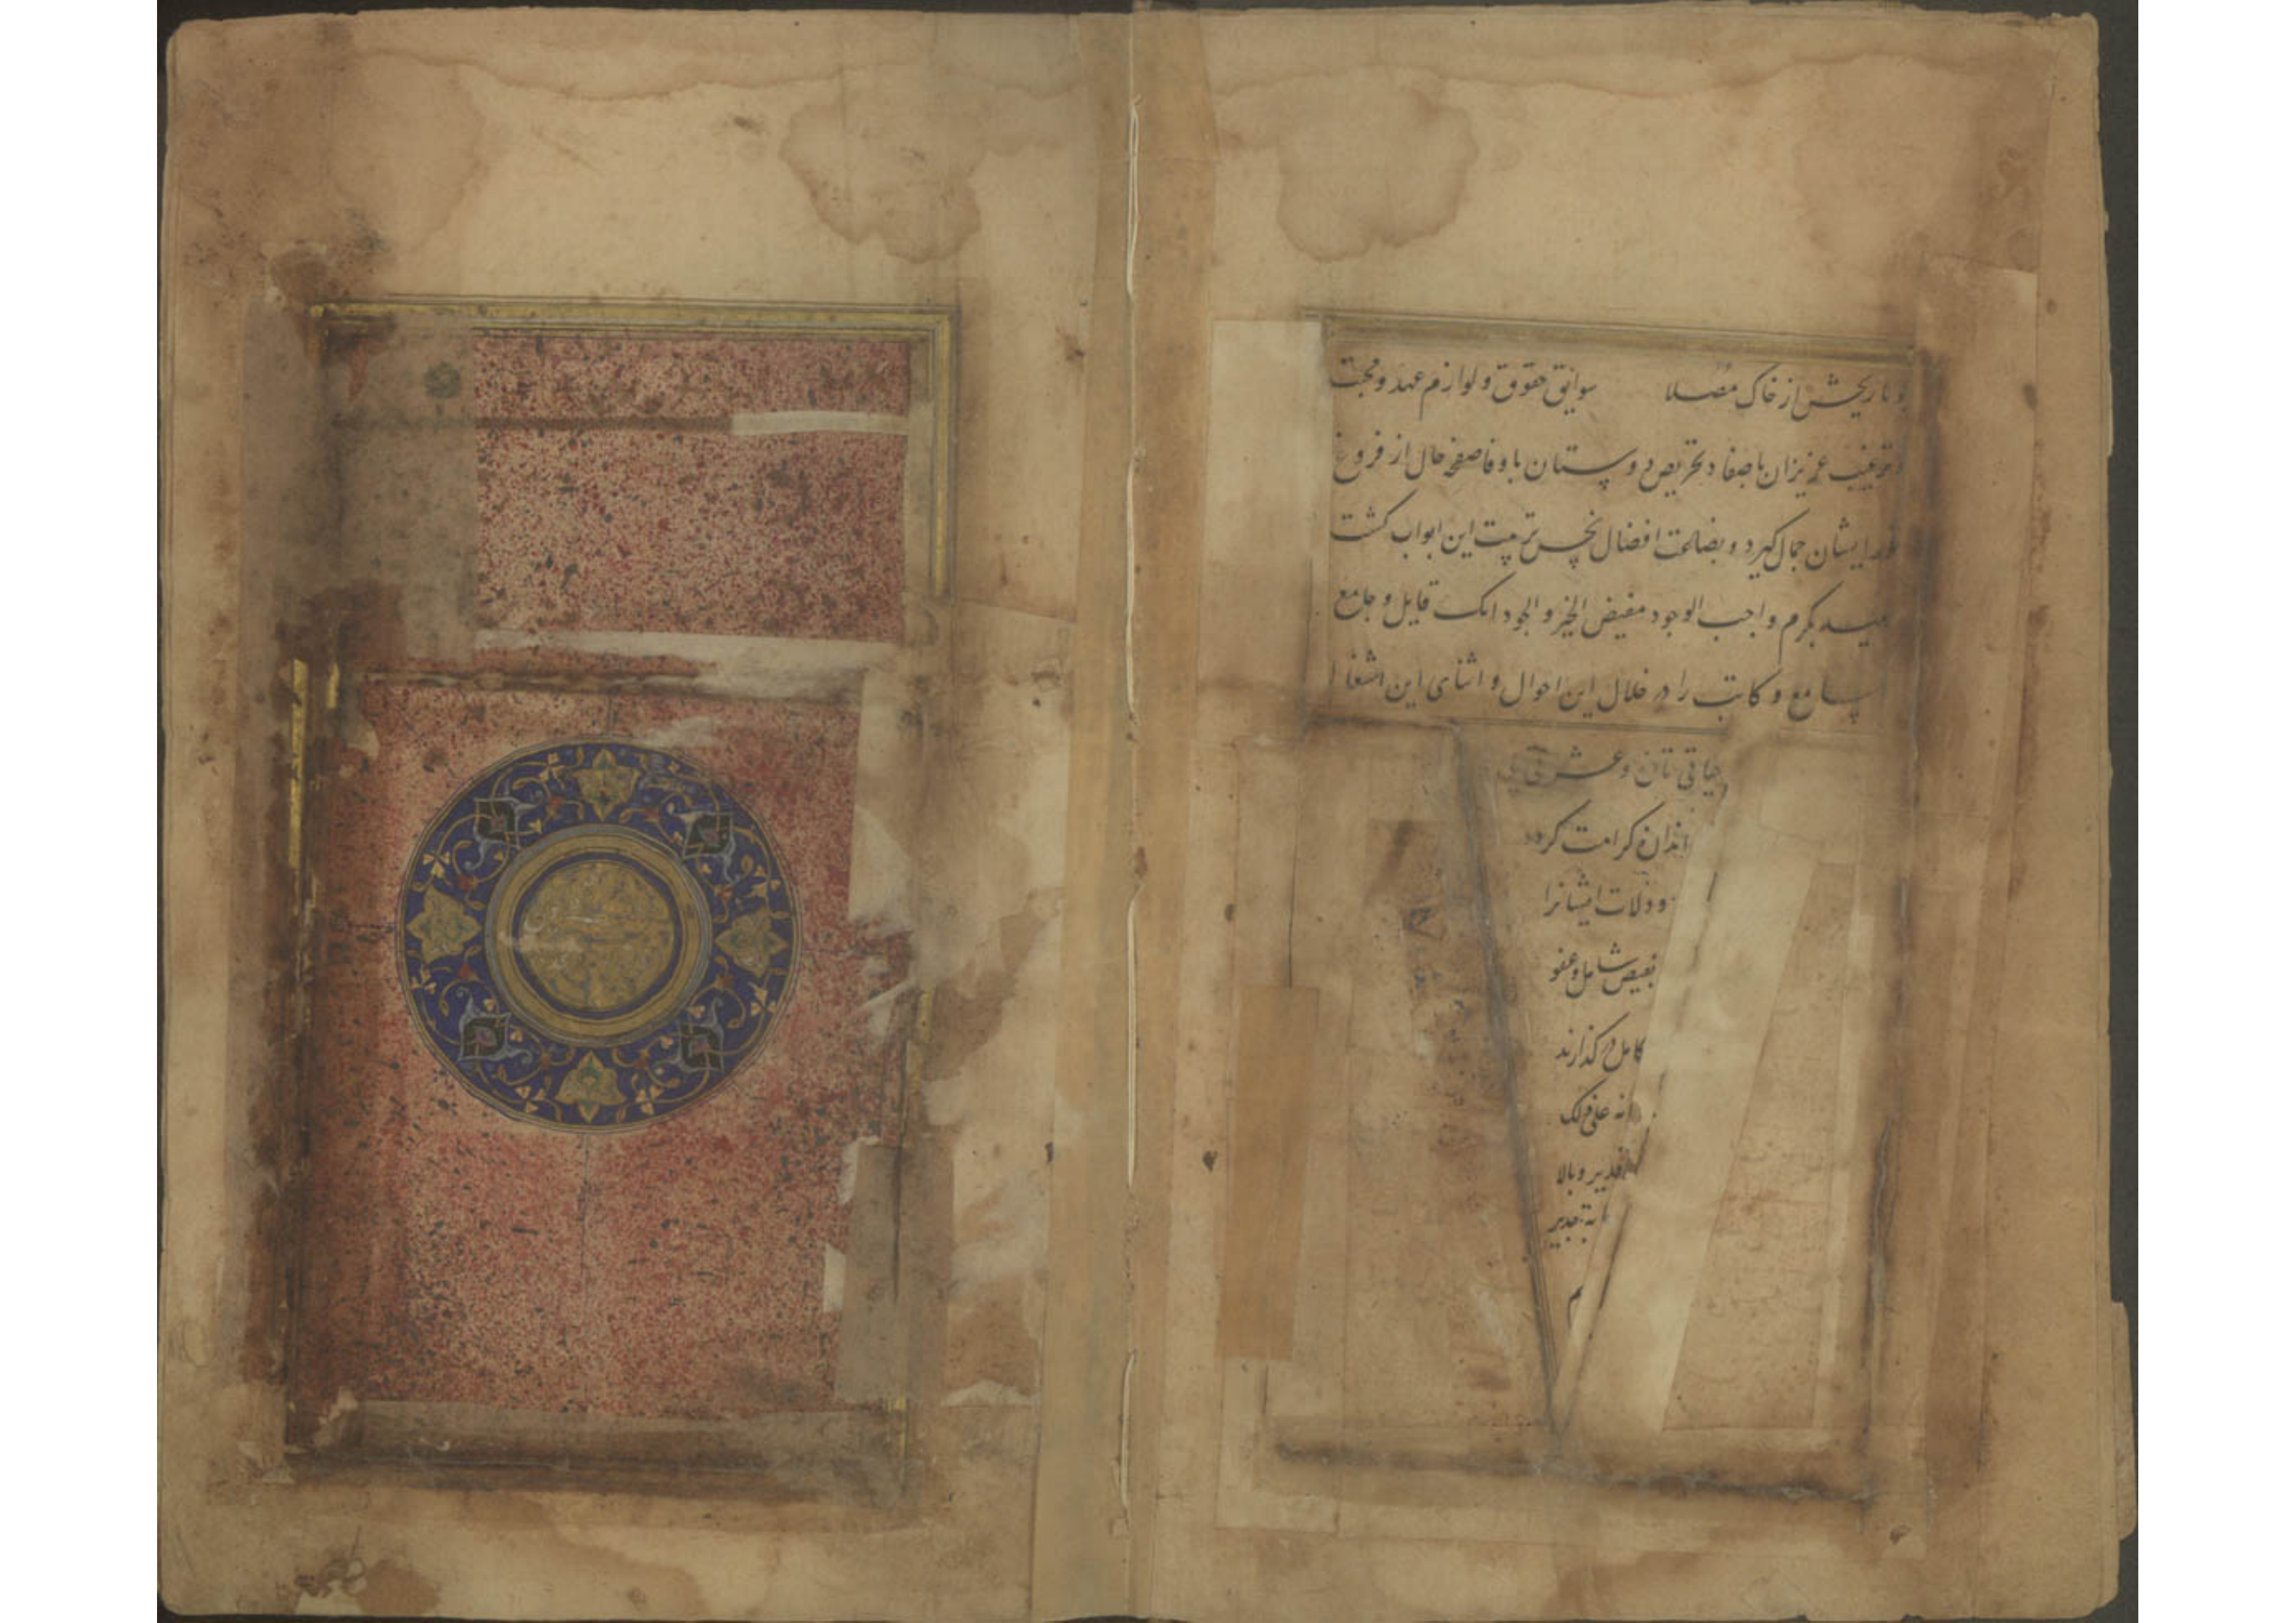 تاریخش از خاک مصلا سوابق حقوق و لوازم عهد و محبت
و ترغیب عزیزان باصفا و تحریض دوستان باوفا صفحه حال از فروغ
نور ایشان جمال گیرد و بضاعت افضال بحسن تربیت این ابواب کشت
امید بکرم واجب الوجود مفیض الخیر و الجود انک قایل و جامع
سامع و کاتب را در خلال این احوال و اثنای این اشغال
حیاتی تازه و عشرتی بی
اندازه کرامت کرده
و زلات ایشانرا
بفیض شامل و عفو
کامل درگذارند
انه علی ذلک
لقدیر و بالا
جابة جدیر
م